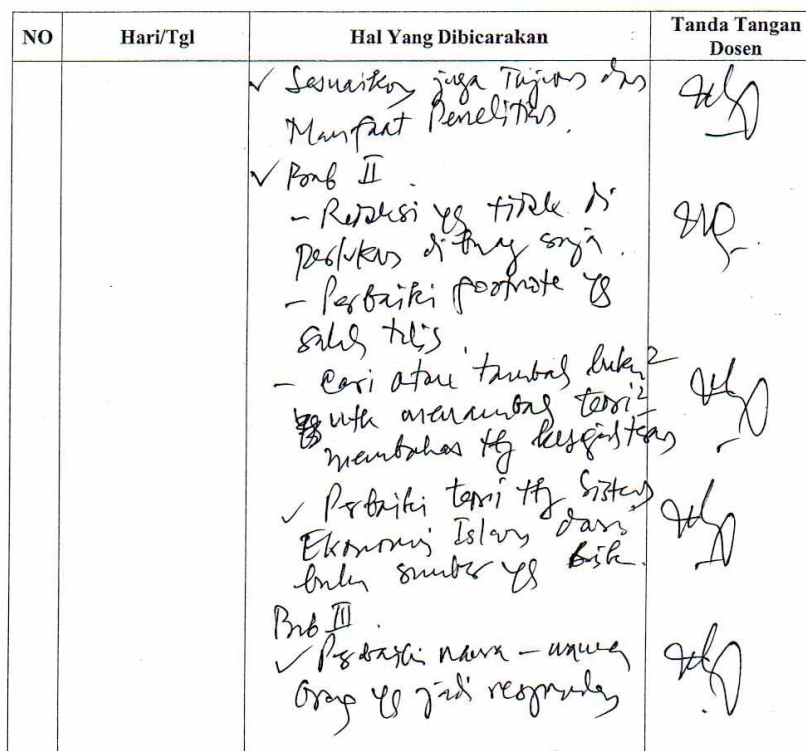 NO Hari/Tgl Hal Yang Dibicarakan Tanda Tangan Dosen
✓ Sesuaikan juga Tujuan dan
Manfaat Penelitian.
✓ Bab II.
- Redaksi yg tidak di
perlukan di buang saja.
- Perbaiki footnote yg
salah tulis.
- Cari atau tambah buku2
utk menambah teori2
membahas ttg kesejahteraan
✓ Perbaiki teori ttg Sistem
Ekonomi Islam dari
buku sumber yg
Bab III.
✓ Perbaiki nama - nama
orang yg jadi responden